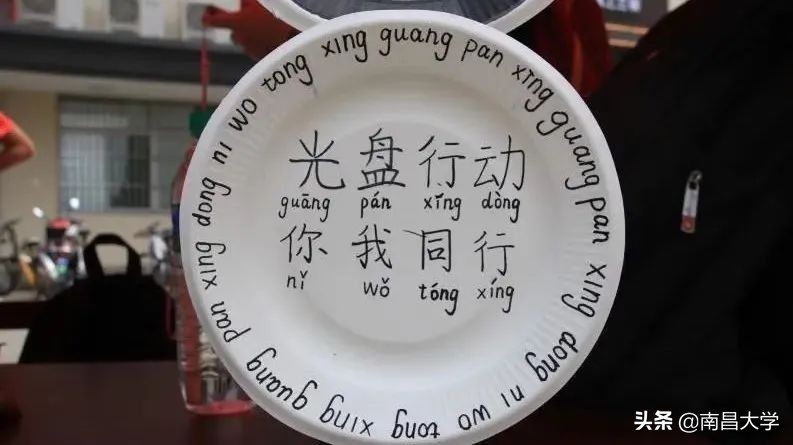 guang pan xing dong ni wo tong xing guang pan xing guang pan xing dong ni wo tong xing
光盘行动
guāng pán xíng dòng
你我同行
nǐ wǒ tóng xíng
头条 @南昌大学